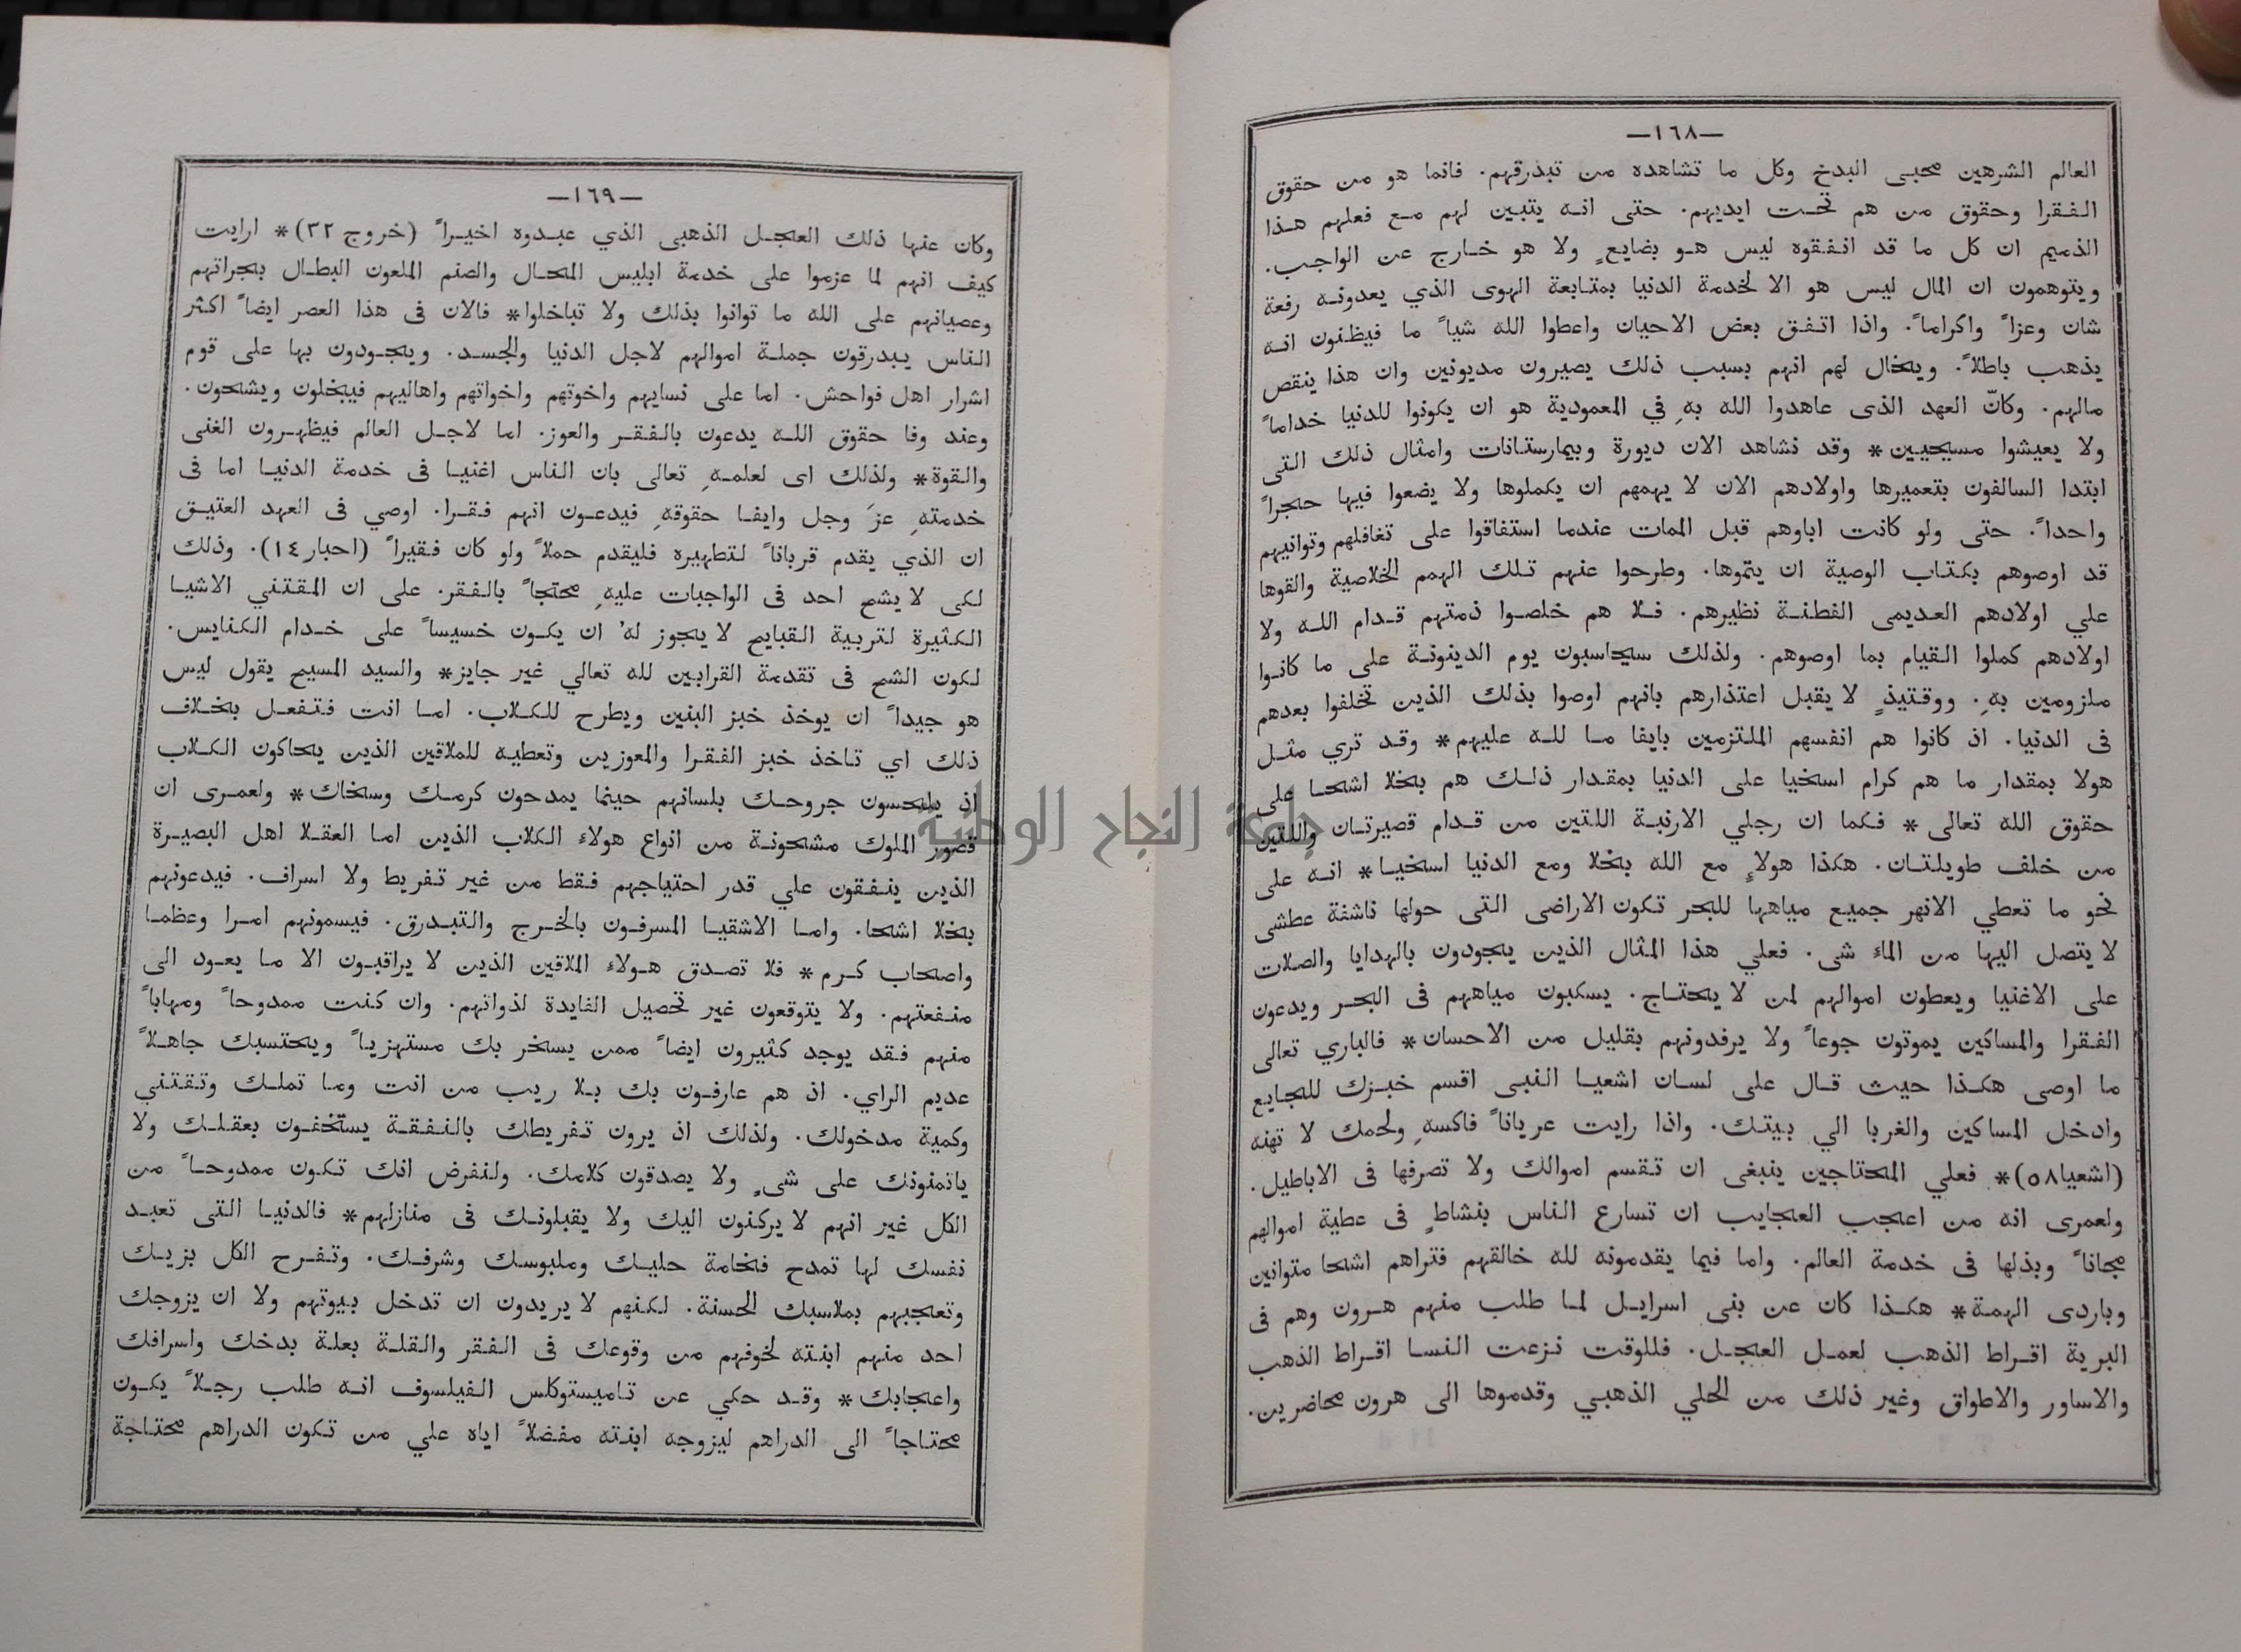 —١٦٨—
العالم الشرهين محبى البدخ وكل ما تشاهده من تبذرقهم. فانما هو من حقوق
الفقرا وحقوق من هم تحت ايديهم. حتى انه يتبين لهم مع فعلهم هذا
الذميم ان كل ما قد انفقوه ليس هو بضايعٍ ولا هو خارج عن الواجب.
ويتوهمون ان المال ليس هو الا لخدمة الدنيا بمتابعة الهوى الذي يعدونه رفعة
شان وعزاً واكراماً. واذا اتفق بعض الاحيان واعطوا الله شياً ما فيظنون انه
يذهب باطلاً. ويخال لهم انهم بسبب ذلك يصيرون مديونين وان هذا ينقص
مالهم. وكانّ العهد الذى عاهدوا الله بهِ في المعمودية هو ان يكونوا للدنيا خداماً
ولا يعيشوا مسيحيين* وقد نشاهد الان ديورة وبيمارستانات وامثال ذلك التى
ابتدا السالفون بتعميرها واولادهم الان لا يهمهم ان يكملوها ولا يضعوا فيها حجراً
واحداً. حتى ولو كانت اباوهم قبل الممات عندما استفاقوا على تغافلهم وتوانيهم
قد اوصوهم بكتاب الوصية ان يتموها. وطرحوا عنهم تلك الهمم الخلاصية والقوها
علي اولادهم العديمى الفطنة نظيرهم. فلا هم خلصوا ذمتهم قدام الله ولا
اولادهم كملوا القيام بما اوصوهم. ولذلك سيحاسبون يوم الدينونة على ما كانوا
ملزومين بهِ. ووقتيذٍ لا يقبل اعتذارهم بانهم اوصوا بذلك الذين تخلفوا بعدهم
فى الدنيا. اذ كانوا هم انفسهم الملتزمين بايفا ما لله عليهم* وقد تري مثل
هولا بمقدار ما هم كرام اسخيا على الدنيا بمقدار ذلك هم بخلا اشحا على
حقوق الله تعالى* فكما ان رجلي الارنبة اللتين من قدام قصيرتان واللتين
من خلف طويلتان. هكذا هولاءِ مع الله بخلا ومع الدنيا اسخيا* انه على
نحو ما تعطي الانهر جميع مياهها للبحر تكون الاراضى التى حولها ناشفة عطشى
لا يتصل اليها من الماء شى. فعلي هذا المثال الذين يجودون بالهدايا والصلات
على الاغنيا ويعطون اموالهم لمن لا يحتاج. يسكبون مياههم فى البحر ويدعون
الفقرا والمساكين يموتون جوعاً ولا يرفدونهم بقليل من الاحسان* فالباري تعالى
ما اوصى هكذا حيث قال على لسان اشعيا النبى اقسم خبزك للجايع
وادخل المساكين والغربا الي بيتك. واذا رايت عرياناً فاكسهِ ولحمك لا تهنه
(اشعيا٥٨)* فعلي المحتاجين ينبغى ان تقسم اموالك ولا تصرفها فى الاباطيل.
ولعمرى انه من اعجب العجايب ان تسارع الناس بنشاطٍ فى عطية اموالهم
مجاناً وبذلها فى خدمة العالم. واما فيما يقدمونه لله خالقهم فتراهم اشحا متوانين
وباردى الهمة* هكذا كان عن بنى اسرايل لما طلب منهم هرون وهم فى
البرية اقراط الذهب لعمل العجل. فللوقت نزعت النسا اقراط الذهب
والاساور والاطواق وغير ذلك من الحلي الذهبي وقدموها الى هرون محاضرين.
—١٦٩—
وكان عنها ذلك العجل الذهبى الذي عبدوه اخيراً (خروج ٣٢)* ارايت
كيف انهم لما عزموا على خدمة ابليس المحال والصنم الملعون البطال بجراتهم
وعصيانهم على الله ما توانوا بذلك ولا تباخلوا* فالان فى هذا العصر ايضاً اكثر
الناس يبدرقون جملة اموالهم لاجل الدنيا والجسد. ويجودون بها على قوم
اشرار اهل فواحش. اما على نسايهم واخوتهم واخواتهم واهاليهم فيبخلون ويشحون.
وعند وفا حقوق الله يدعون بالفقر والعوز. اما لاجل العالم فيظهرون الغنى
والقوة* ولذلك اى لعلمهِ تعالى بان الناس اغنيا فى خدمة الدنيا اما فى
خدمتهِ عزَ وجل وايفا حقوقهِ فيدعون انهم فقرا. اوصي فى العهد العتيق
ان الذي يقدم قرباناً لتطهيره فليقدم حملاً ولو كان فقيراً (احبار ١٤). وذلك
لكى لا يشح احد فى الواجبات عليهِ محتجاً بالفقر. على ان المقتني الاشيا
الكثيرة لتربية القبايح لا يجوز لهُ ان يكون خسيساً على خدام الكنايس.
لكون الشح فى تقدمة القرابين لله تعالي غير جايز* والسيد المسيح يقول ليس
هو جيداً ان يوخذ خبز البنين ويطرح للكلاب. اما انت فتفعل بخلاف
ذلك اي تاخذ خبز الفقرا والمعوزين وتعطيه للملاقين الذين يحاكون الكلاب
اذ يلحسون جروحك بلسانهم حينما يمدحون كرمك وسخاك* ولعمرى ان
قصور الملوك مشحونة من انواع هولاء الكلاب الذين اما العقلا اهل البصيرة
الذين ينفقون علي قدر احتياجهم فقط من غير تفريط ولا اسراف. فيدعونهم
بخلا اشحا. واما الاشقيا المسرفون بالخرج والتبدرق. فيسمونهم امرا وعظما
واصحاب كرم* فلا تصدق هولاء الملاقين الذين لا يراقبون الا ما يعود الى
منفعتهم. ولا يتوقعون غير تحصيل الفايدة لذواتهم. وان كنت ممدوحاً ومهاباً
منهم فقد يوجد كثيرون ايضاً ممن يسخر بك مستهزياً ويحتسبك جاهلاً
عديم الراي. اذ هم عارفون بك بلا ريب من انت وما تملك وتقتني
وكمية مدخولك. ولذلك اذ يرون تفريطك بالنفقة يستخفون بعقلك ولا
ياتمنونك على شىٍ ولا يصدقون كلامك. ولنفرض انك تكون ممدوحاً من
الكل غير انهم لا يركنون اليك ولا يقبلونك فى منازلهم* فالدنيا التى تعبد
نفسك لها تمدح فخامة حليك وملبوسك وشرفك. وتفرح الكل بزيك
وتعجبهم بملاسبك الحسنة. لكنهم لا يريدون ان تدخل بيوتهم ولا ان يزوجك
احد منهم ابنته لخوفهم من وقوعك فى الفقر والقلة بعلة بدخك واسرافك
واعجابك* وقد حكي عن تاميستوكلس الفيلسوف انه طلب رجلاً يكون
محتاجاً الى الدراهم ليزوجه ابنته مفضلاً اياه علي من تكون الدراهم محتاجة
جامعة النجاح الوطنية